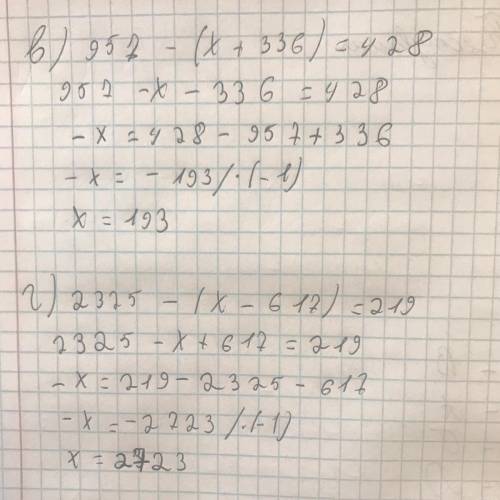 в) 957 - (x + 336) = 428
957 - x - 336 = 428
- x = 428 - 957 + 336
- x = - 193 / · (-1)
x = 193
г) 2325 - (x - 617) = 219
2325 - x + 617 = 219
- x = 219 - 2325 - 617
- x = - 2723 / · (-1)
x = 2723